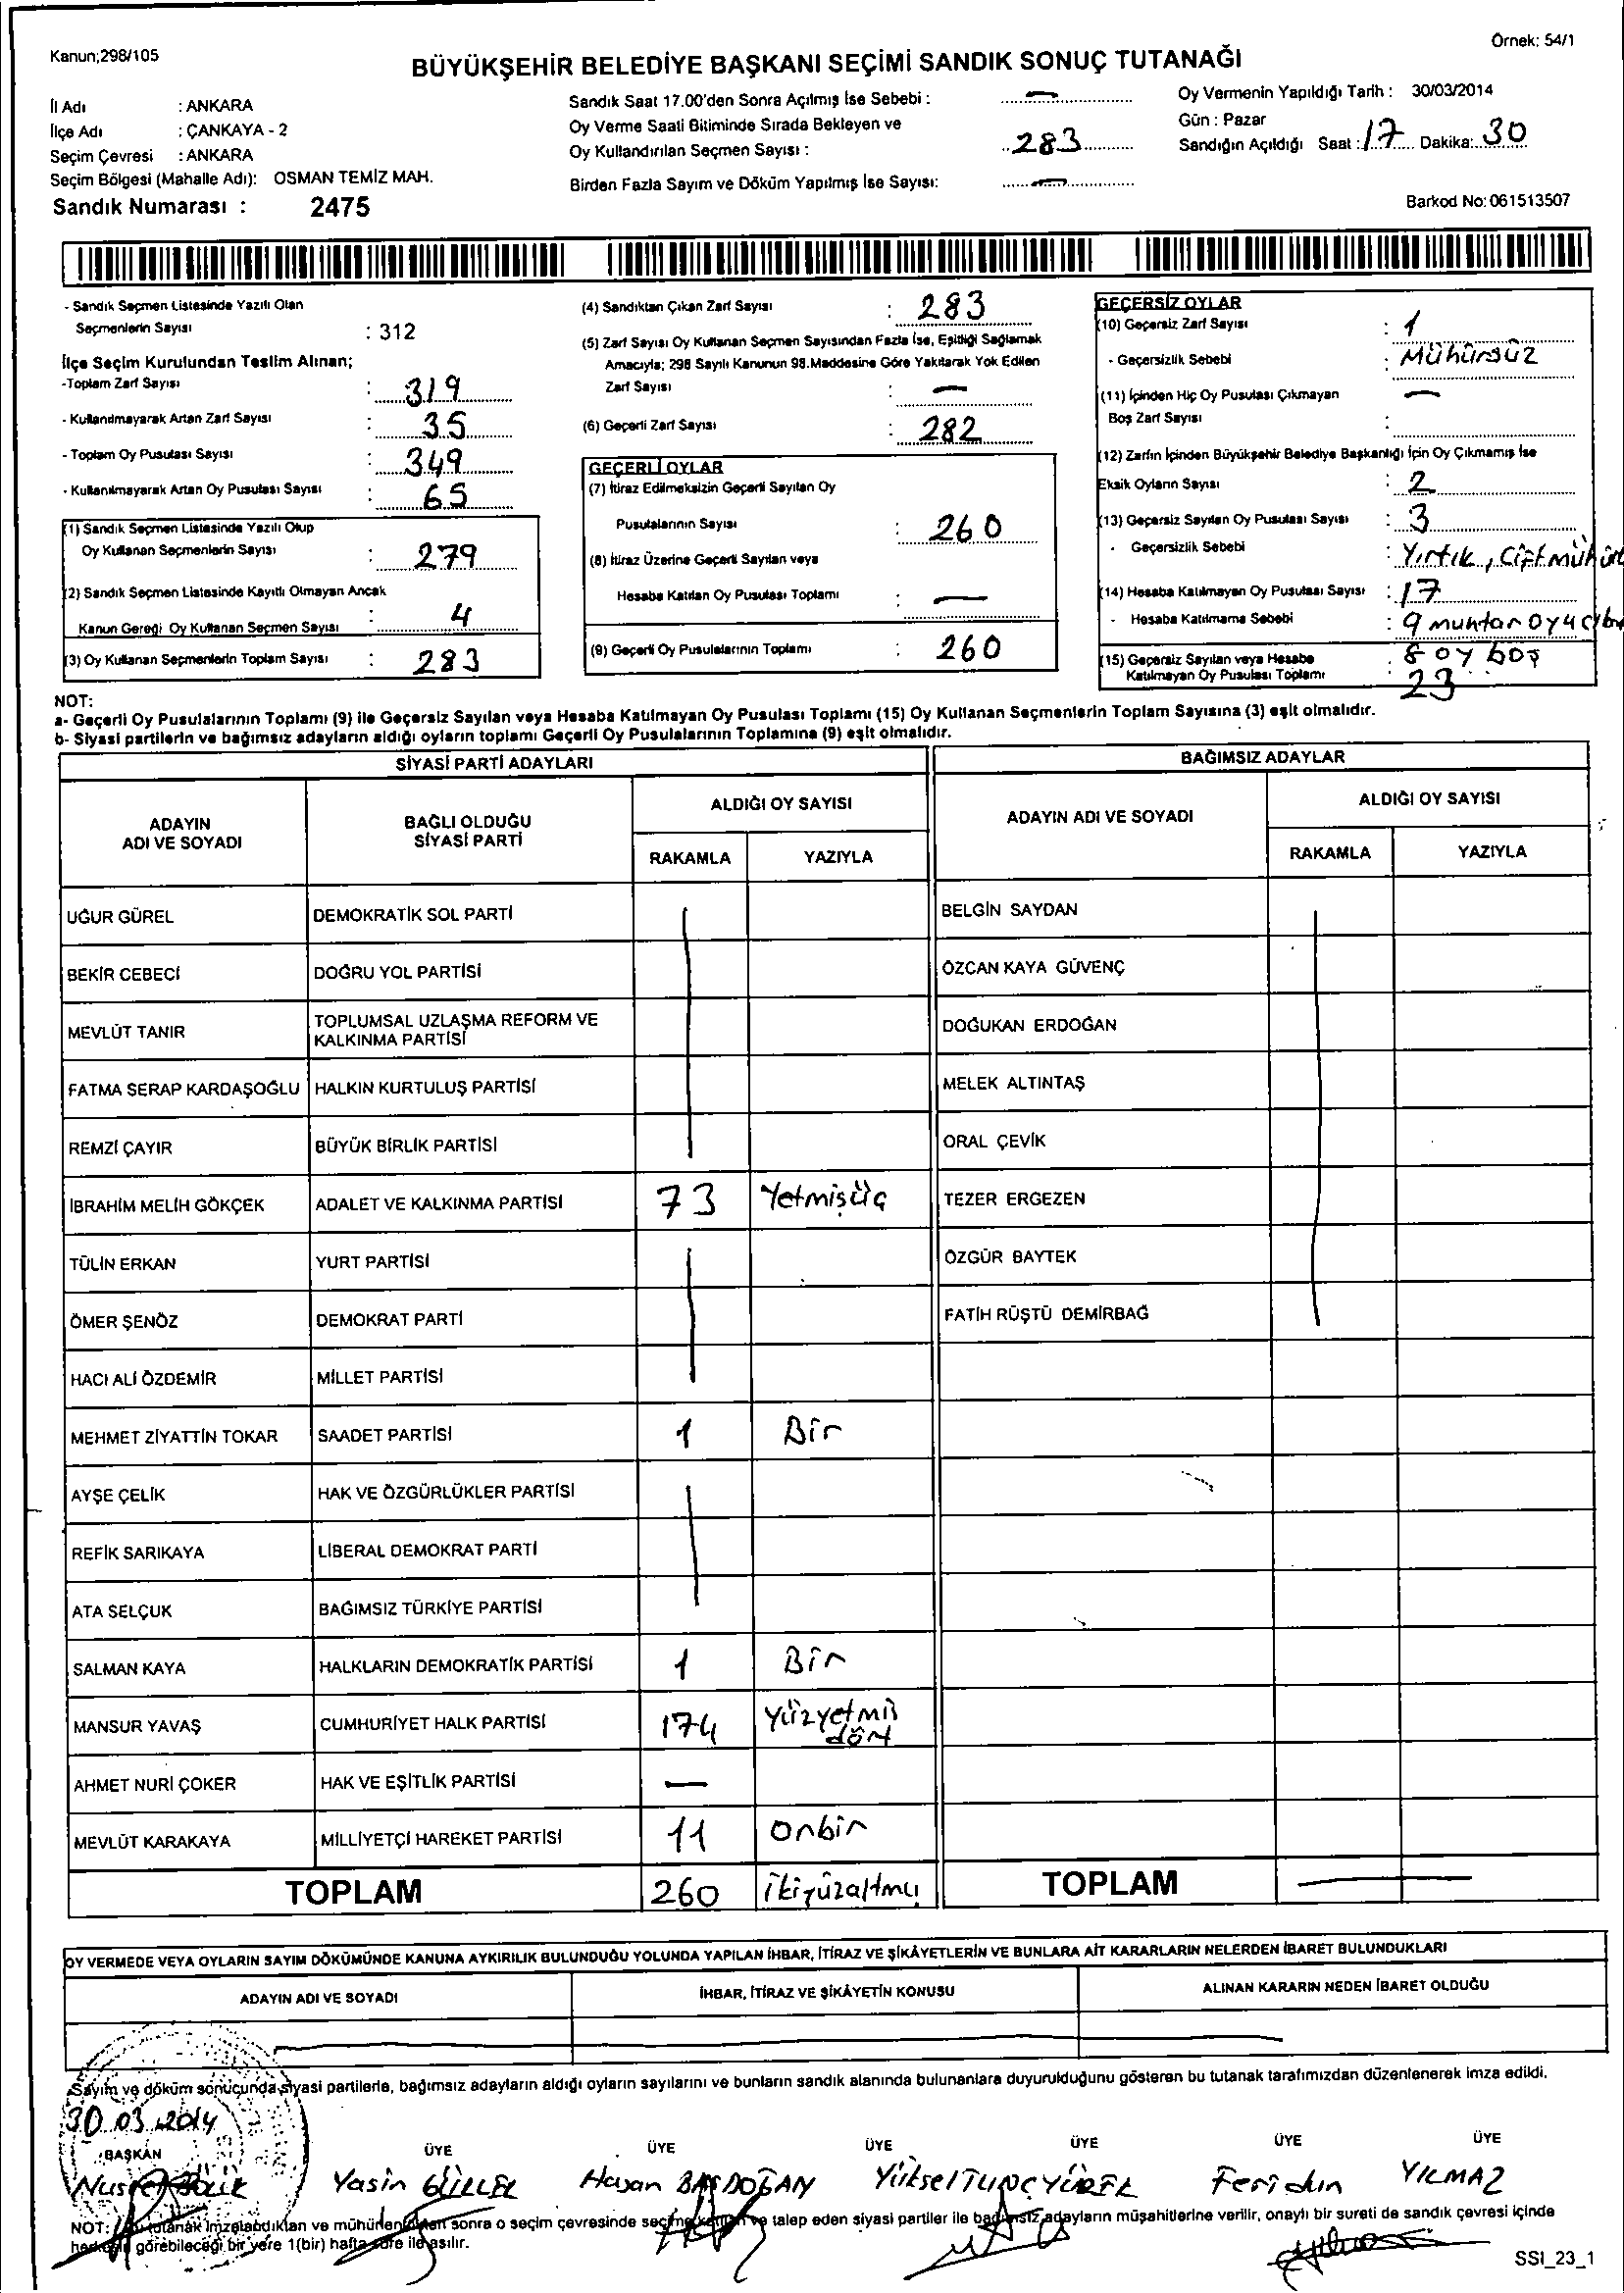 Kanun;298/105
Örnek: 54/1
BÜYÜKŞEHİR BELEDİYE BAŞKANI SEÇİMİ SANDIK SONUÇ TUTANAĞI
İl Adı : ANKARA
İlçe Adı : ÇANKAYA - 2
Seçim Çevresi : ANKARA
Seçim Bölgesi (Mahalle Adı): OSMAN TEMİZ MAH.
Sandık Numarası : 2475
Sandık Saat 17.00'den Sonra Açılmış İse Sebebi : —
Oy Verme Saati Bitiminde Sırada Bekleyen ve
Oy Kullandırılan Seçmen Sayısı : 283
Birden Fazla Sayım ve Döküm Yapılmış İse Sayısı: —
Oy Vermenin Yapıldığı Tarih : 30/03/2014
Gün : Pazar
Sandığın Açıldığı Saat : 17 Dakika: 30
Barkod No: 061513507
- Sandık Seçmen Listesinde Yazılı Olan
Seçmenlerin Sayısı : 312
İlçe Seçim Kurulundan Teslim Alınan;
-Toplam Zarf Sayısı : 319
- Kullanılmayarak Artan Zarf Sayısı : 35
- Toplam Oy Pusulası Sayısı : 349
- Kullanılmayarak Artan Oy Pusulası Sayısı : 65
(1) Sandık Seçmen Listesinde Yazılı Olup
Oy Kullanan Seçmenlerin Sayısı : 279
(2) Sandık Seçmen Listesinde Kayıtlı Olmayan Ancak
Kanun Gereği Oy Kullanan Seçmen Sayısı : 4
(3) Oy Kullanan Seçmenlerin Toplam Sayısı : 283
(4) Sandıktan Çıkan Zarf Sayısı : 283
(5) Zarf Sayısı Oy Kullanan Seçmen Sayısından Fazla İse, Eşitliği Sağlamak
Amacıyla; 298 Sayılı Kanunun 98.Maddesine Göre Yakılarak Yok Edilen
Zarf Sayısı : —
(6) Geçerli Zarf Sayısı : 282
GEÇERLİ OYLAR
(7) İtiraz Edilmeksizin Geçerli Sayılan Oy
Pusulalarının Sayısı : 260
(8) İtiraz Üzerine Geçerli Sayılan veya
Hesaba Katılan Oy Pusulası Toplamı : —
(9) Geçerli Oy Pusulalarının Toplamı : 260
GEÇERSİZ OYLAR
(10) Geçersiz Zarf Sayısı : 1
- Geçersizlik Sebebi : Mühürsüz
(11) İçinden Hiç Oy Pusulası Çıkmayan —
Boş Zarf Sayısı :
(12) Zarfın İçinden Büyükşehir Belediye Başkanlığı İçin Oy Çıkmamış İse
Eksik Oyların Sayısı : 2
(13) Geçersiz Sayılan Oy Pusulası Sayısı : 3
- Geçersizlik Sebebi : Yırtık, Çift mühür
(14) Hesaba Katılmayan Oy Pusulası Sayısı : 17
- Hesaba Katılmama Sebebi : 9 muhtar oyu
8 oy boş
(15) Geçersiz Sayılan veya Hesaba
Katılmayan Oy Pusulası Toplamı : 23
NOT:
a- Geçerli Oy Pusulalarının Toplamı (9) ile Geçersiz Sayılan veya Hesaba Katılmayan Oy Pusulası Toplamı (15) Oy Kullanan Seçmenlerin Toplam Sayısına (3) eşit olmalıdır.
b- Siyasi partilerin ve bağımsız adayların aldığı oyların toplamı Geçerli Oy Pusulalarının Toplamına (9) eşit olmalıdır.
SİYASİ PARTİ ADAYLARI
ADAYIN
ADI VE SOYADI
BAĞLI OLDUĞU
SİYASİ PARTİ
ALDIĞI OY SAYISI
RAKAMLA YAZIYLA
UĞUR GÜREL DEMOKRATİK SOL PARTİ
BEKİR CEBECİ DOĞRU YOL PARTİSİ
MEVLÜT TANIR TOPLUMSAL UZLAŞMA REFORM VE
KALKINMA PARTİSİ
FATMA SERAP KARDAŞOĞLU HALKIN KURTULUŞ PARTİSİ
REMZİ ÇAYIR BÜYÜK BİRLİK PARTİSİ
İBRAHİM MELİH GÖKÇEK ADALET VE KALKINMA PARTİSİ 73 Yetmişüç
TÜLİN ERKAN YURT PARTİSİ
ÖMER ŞENÖZ DEMOKRAT PARTİ
HACI ALİ ÖZDEMİR MİLLET PARTİSİ
MEHMET ZİYATTİN TOKAR SAADET PARTİSİ 1 Bir
AYŞE ÇELİK HAK VE ÖZGÜRLÜKLER PARTİSİ
REFİK SARIKAYA LİBERAL DEMOKRAT PARTİ
ATA SELÇUK BAĞIMSIZ TÜRKİYE PARTİSİ
SALMAN KAYA HALKLARIN DEMOKRATİK PARTİSİ 1 Bir
MANSUR YAVAŞ CUMHURİYET HALK PARTİSİ 174 Yüzyetmiş
dört
AHMET NURİ ÇOKER HAK VE EŞİTLİK PARTİSİ —
MEVLÜT KARAKAYA MİLLİYETÇİ HAREKET PARTİSİ 11 Onbir
TOPLAM 260 İkiyüzaltmış
BAĞIMSIZ ADAYLAR
ADAYIN ADI VE SOYADI
ALDIĞI OY SAYISI
RAKAMLA YAZIYLA
BELGİN SAYDAN
ÖZCAN KAYA GÜVENÇ
DOĞUKAN ERDOĞAN
MELEK ALTINTAŞ
ORAL ÇEVİK
TEZER ERGEZEN
ÖZGÜR BAYTEK
FATİH RÜŞTÜ DEMİRBAĞ
TOPLAM —
OY VERMEDE VEYA OYLARIN SAYIM DÖKÜMÜNDE KANUNA AYKIRILIK BULUNDUĞU YOLUNDA YAPILAN İHBAR, İTİRAZ VE ŞİKÂYETLERİN VE BUNLARA AİT KARARLARIN NELERDEN İBARET BULUNDUKLARI
ADAYIN ADI VE SOYADI İHBAR, İTİRAZ VE ŞİKÂYETİN KONUSU ALINAN KARARIN NEDEN İBARET OLDUĞU
Sayım ve döküm sonucunda siyasi partilerle, bağımsız adayların aldığı oyların sayılarını ve bunların sandık alanında bulunanlara duyurulduğunu gösteren bu tutanak tarafımızdan düzenlenerek imza edildi.
30.03.2014
BAŞKAN ÜYE ÜYE ÜYE ÜYE ÜYE ÜYE
Yasin Hasan BAŞDOĞAN Yüksel TUNÇYÜREK Feridun YILMAZ
NOT: Bu tutanak imzalandıktan ve mühürlendikten sonra o seçim çevresinde seçime katılan ve talep eden siyasi partiler ile bağımsız adayların müşahitlerine verilir, onaylı bir sureti de sandık çevresi içinde
herkesin görebileceği bir yere 1(bir) hafta süre ile asılır.
SSI_23_1